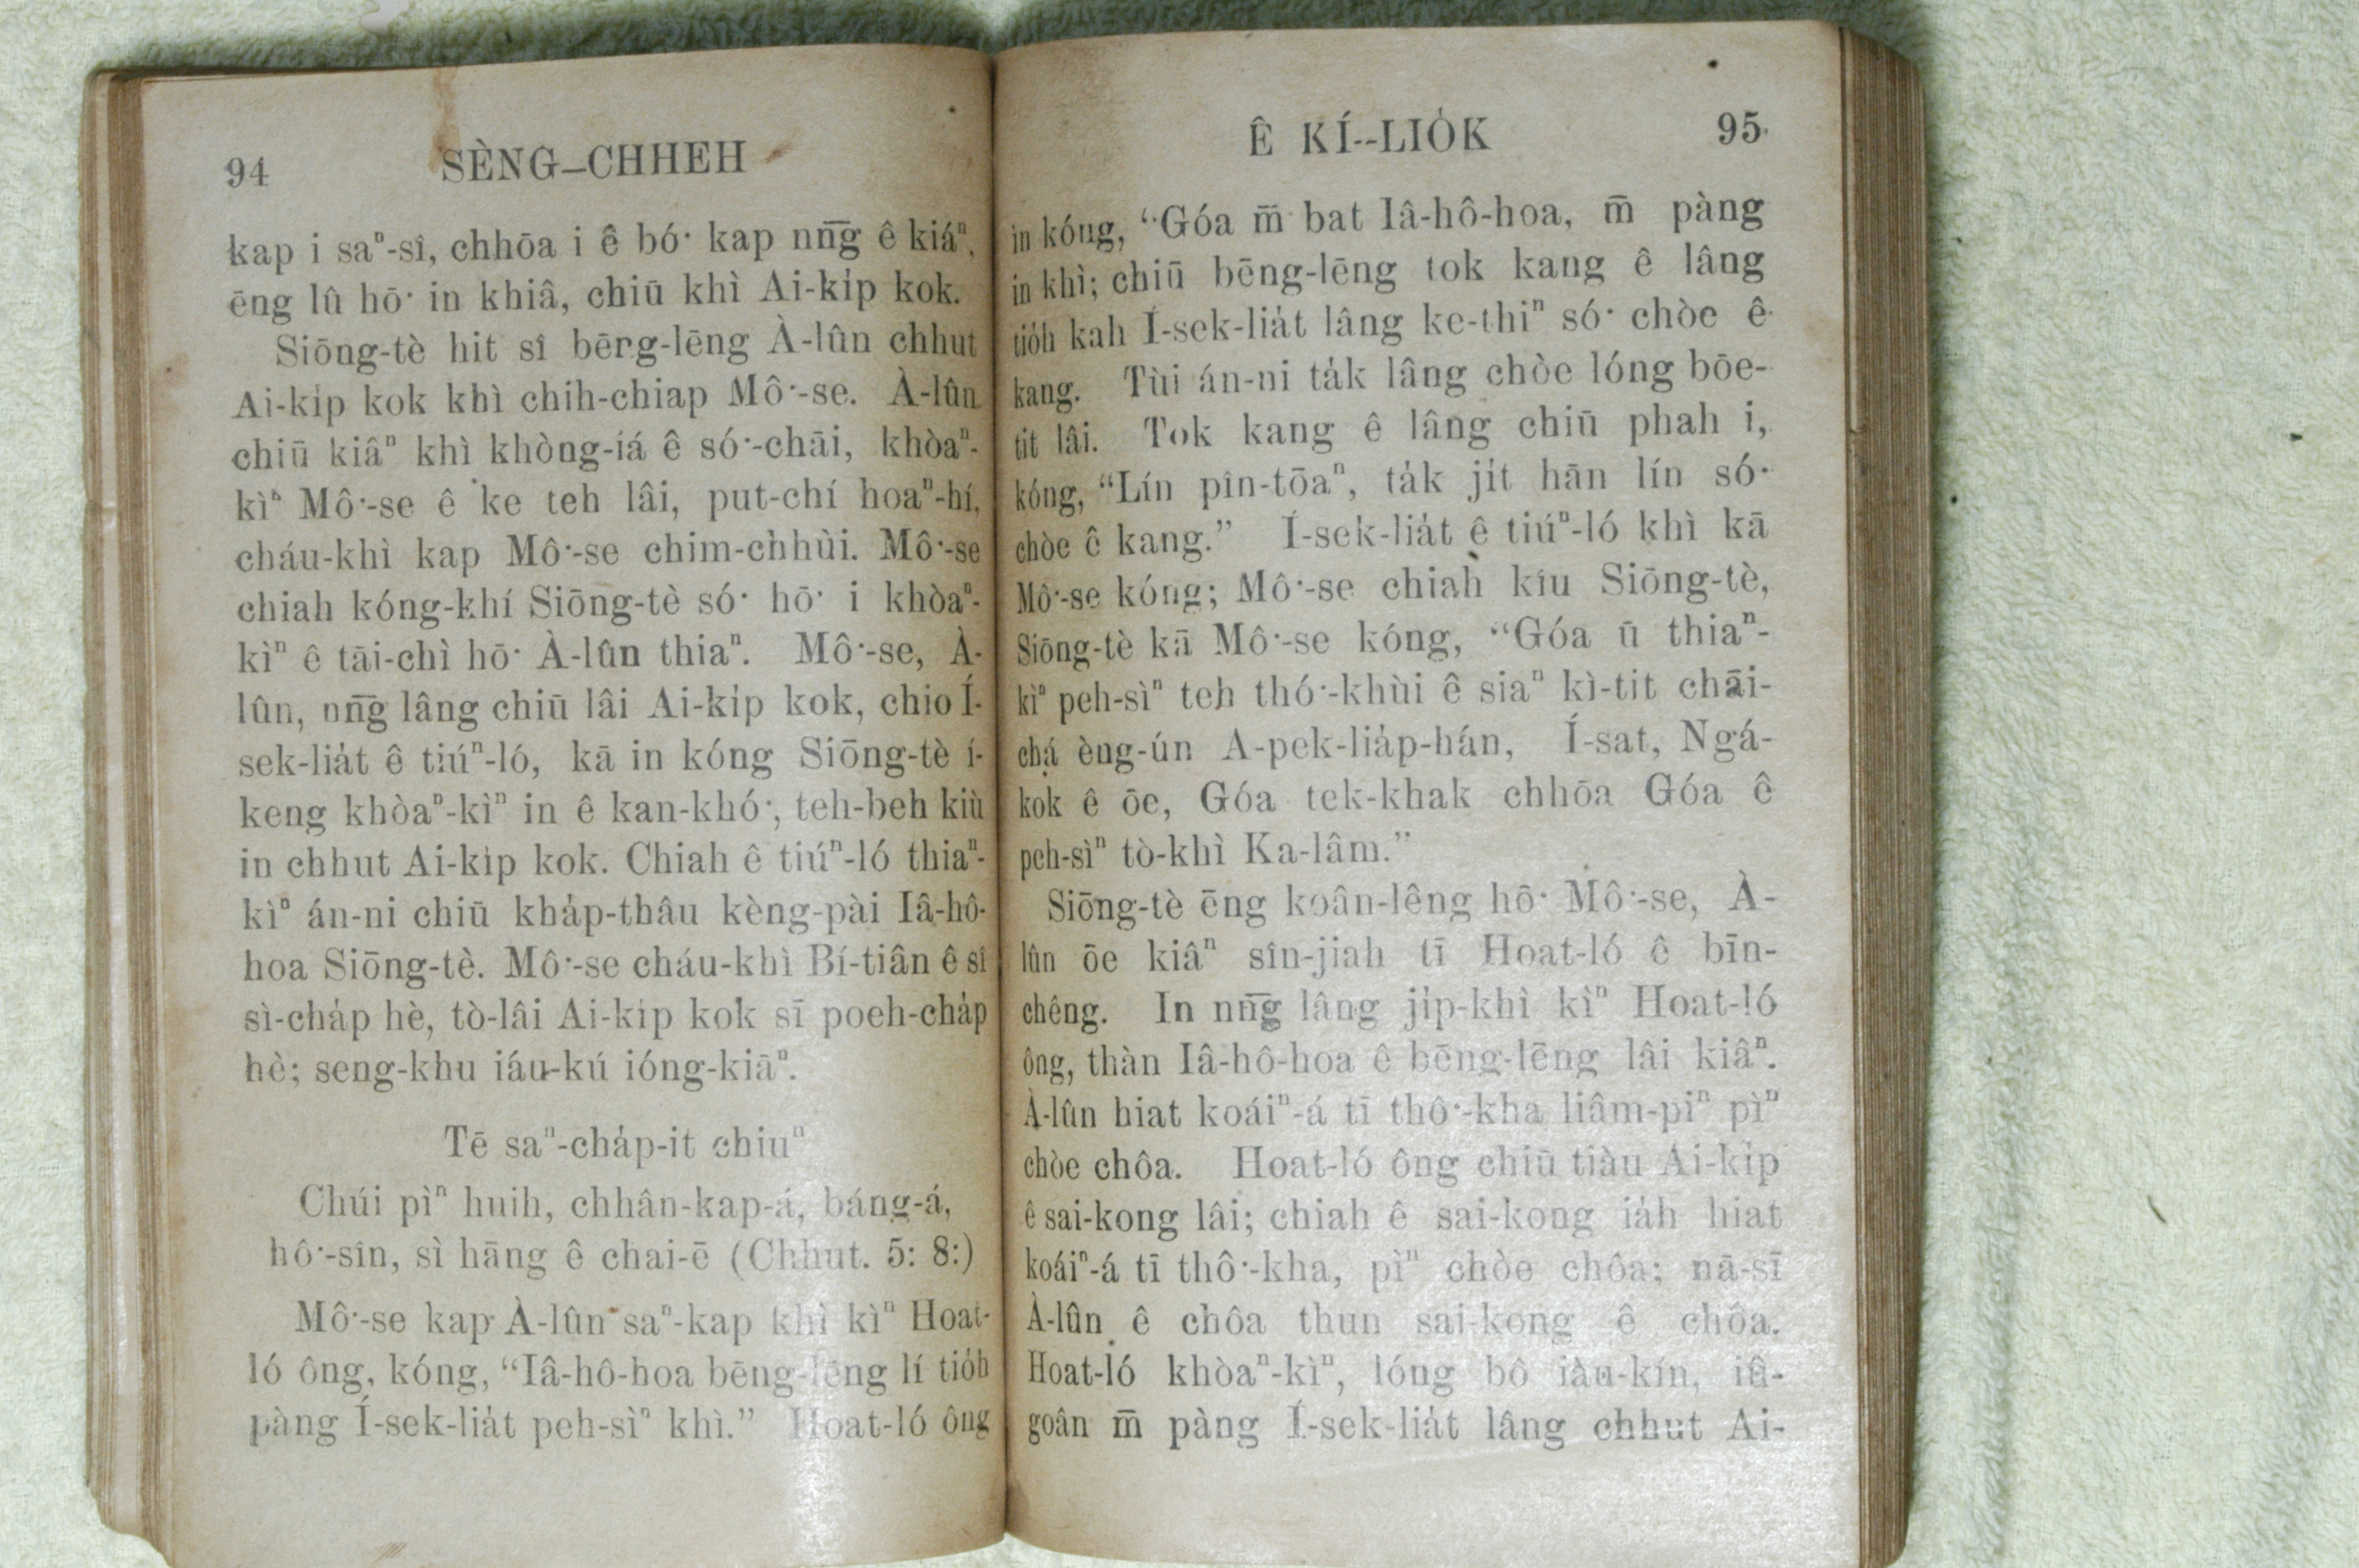 94 SÈNG-CHHEH
kap i saⁿ-sî, chhōa i ê bó͘ kap nn̄g ê kiáⁿ,
ēng lû hō͘ in khiâ, chiū khì Ai-ki̍p kok.
Siōng-tè hit sî bēng-lēng À-lûn chhut
Ai-ki̍p kok khì chih-chiap Mô͘-se. À-lûn
chiū kiâⁿ khì khòng-iá ê só͘-chāi, khòaⁿ-
kìⁿ Mô͘-se ê ke teh lâi, put-chí hoaⁿ-hí,
cháu-khì kap Mô͘-se chim-chhùi. Mô͘-se
chiah kóng-khí Siōng-tè só͘ hō͘ i khòaⁿ-
kìⁿ ê tāi-chì hō͘ À-lûn thiaⁿ. Mô͘-se, À-
lûn, nn̄g lâng chiū lâi Ai-ki̍p kok, chio Í-
sek-lia̍t ê tiúⁿ-ló, kā in kóng Siōng-tè í-
keng khòaⁿ-kìⁿ in ê kan-khó͘, teh-beh kiù
in chhut Ai-ki̍p kok. Chiah ê tiúⁿ-ló thiaⁿ-
kìⁿ án-ni chiū kha̍p-thâu kèng-pài Iâ-hô-
hoa Siōng-tè. Mô͘-se cháu-khì Bí-tiân ê sî
sì-cha̍p hè, tò-lâi Ai-ki̍p kok sī poeh-cha̍p
hè; seng-khu iáu-kú ióng-kiāⁿ.
Tē saⁿ-cha̍p-it chiuⁿ
Chúi pìⁿ huih, chhân-kap-á, báng-á,
hô͘-sîn, sì hāng ê chai-ē (Chhut. 5: 8:)
Mô͘-se kap À-lûn saⁿ-kap khì kìⁿ Hoat-
ló ông, kóng, “Iâ-hô-hoa bēng-lēng lí tio̍h
pàng Í-sek-lia̍t peh-sìⁿ khì.” Hoat-ló ông
Ê KÍ--LIO̍K 95
in kóng, “Góa m̄ bat Iâ-hô-hoa, m̄ pàng
in khì; chiū bēng-lēng tok kang ê lâng
tio̍h kah Í-sek-lia̍t lâng ke-thiⁿ só͘ chòe ê
kang. Tùi án-ni ta̍k lâng chòe lóng bōe-
tit lâi. Tok kang ê lâng chiū phah i,
kóng, “Lín pîn-tōaⁿ, ta̍k ji̍t hān lín só͘
chòe ê kang.” Í-sek-lia̍t ê tiúⁿ-ló khì kā
Mô͘-se kóng; Mô͘-se chiah kîu Siōng-tè,
Siōng-tè kā Mô͘-se kóng, “Góa ū thiaⁿ-
kìⁿ peh-sìⁿ teh thó͘-khùi ê siaⁿ kì-tit chāi-
chá èng-ún A-pek-lia̍p-hán, Í-sat, Ngá-
kok ê ōe, Góa tek-khak chhōa Góa ê
peh-sìⁿ tò-khì Ka-lâm.”
Siōng-tè ēng koân-lêng hō͘ Mô͘-se, À-
lûn ōe kiâⁿ sîn-jiah tī Hoat-ló ê bīn-
chêng. In nn̄g lâng ji̍p-khì kìⁿ Hoat-ló
ông, thàn Iâ-hô-hoa ê bēng-lēng lâi kiâⁿ.
À-lûn hiat koáiⁿ-á tī thô͘-kha liâm-piⁿ pìⁿ
chòe chôa. Hoat-ló ông chiū tiàu Ai-ki̍p
ê sai-kong lâi; chiah ê sai-kong ia̍h hiat
koáiⁿ-á tī thô͘-kha, pìⁿ chòe chôa; nā-sī
À-lûn ê chôa thun sai-kong ê chôa.
Hoat-ló khòaⁿ-kìⁿ, lóng bô iàu-kín, iû-
goân m̄ pàng Í-sek-lia̍t lâng chhut Ai-